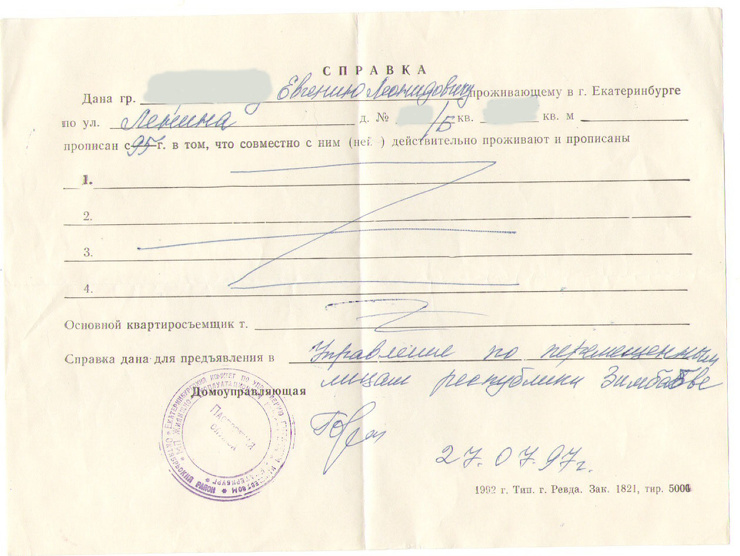 СПРАВКА
Дана гр. Евгению Леонидовичу, проживающему в г. Екатеринбурге
по ул. Ленина д. № /Б кв. кв. м
прописан с 95 г. в том, что совместно с ним (ней) действительно проживают и прописаны
1.
2.
3.
4.
Основной квартиросъемщик т.
Справка дана для предъявления в Управление по перемещенным
лицам республики Зимбабве
Домоуправляющая
Паспортный
27.07.97г.
1992 г. Тип. г. Ревда. Зак. 1821, тир. 5000